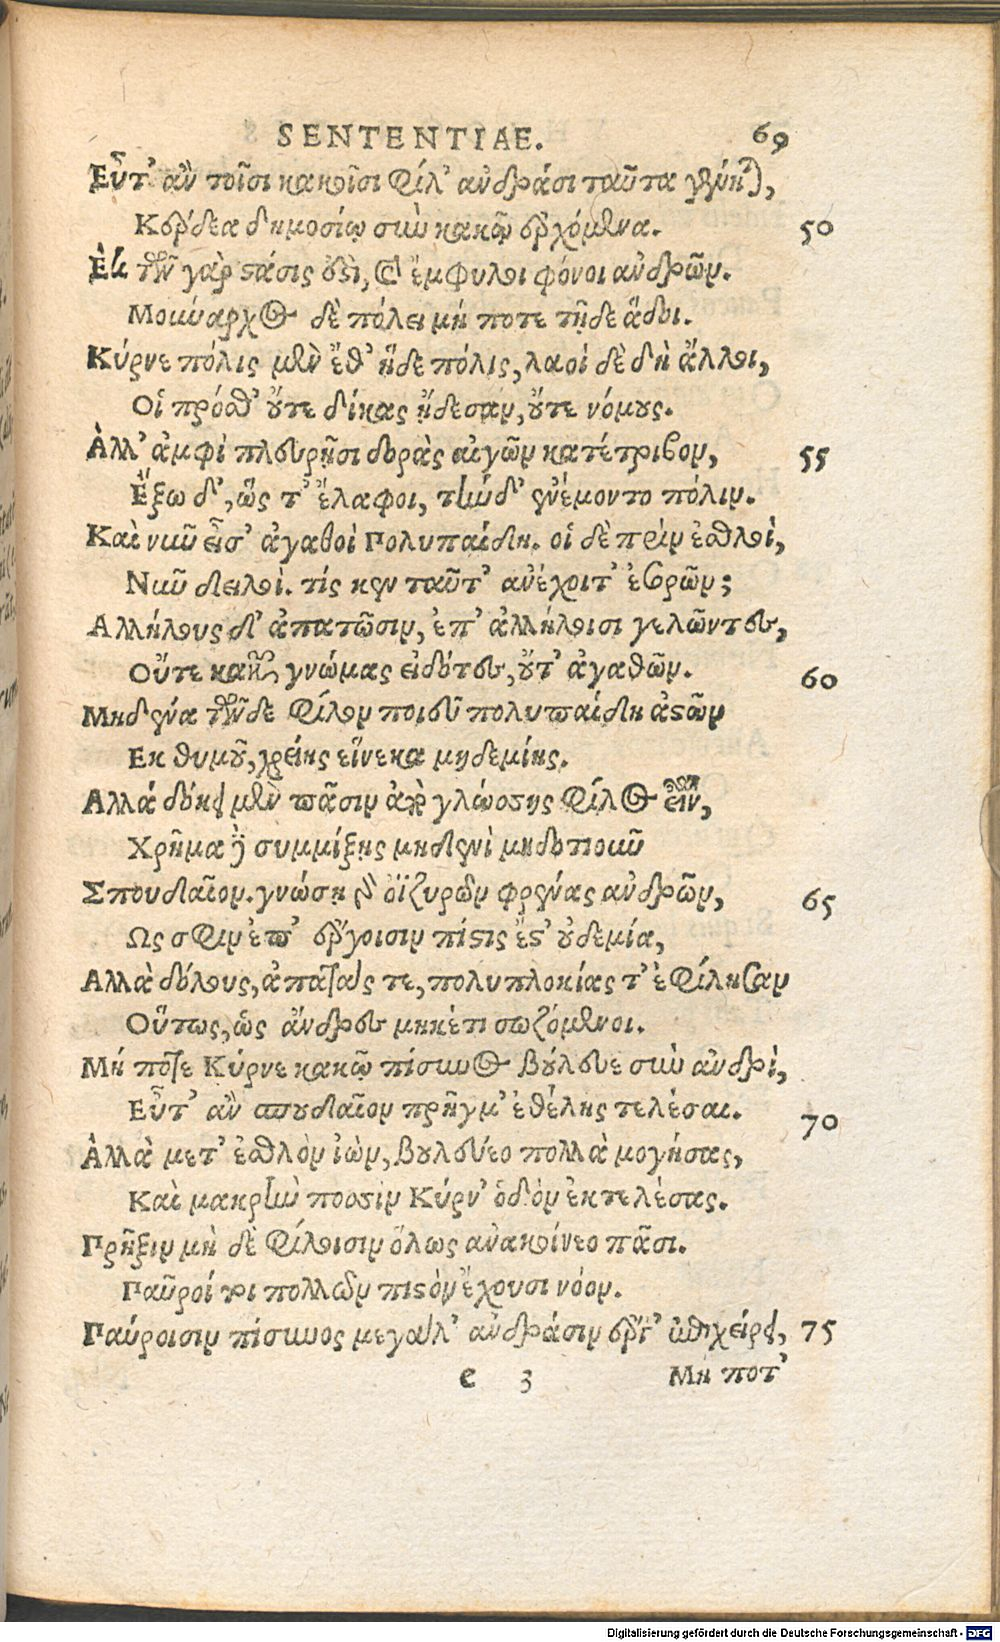 SENTENTIAE. 69
Εὖτ' ἂν τοῖσι κακοῖσι φίλ' ἀνδράσι ταῦτα γένηται,
Κέρδεα δημοσίῳ σὺν κακῷ ἐρχόμενα. 50
Ἐκ τῶν γὰρ στάσις ἐστὶ, καὶ ἔμφυλοι φόνοι ἀνδρῶν.
Μούναρχος δὲ πόλει μή ποτε τῇδε ἅδοι.
Κύρνε πόλις μὲν ἔθ' ἥδε πόλις, λαοὶ δὲ δὴ ἄλλοι,
Οἳ πρόσθ' οὔτε δίκας ᾔδεσαν, οὔτε νόμους.
Ἀλλ' ἀμφὶ πλευρῇσι δορὰς αἰγῶν κατέτριβον, 55
Ἔξω δ', ὥς τ' ἔλαφοι, τήνδ' ἐνέμοντο πόλιν.
Καὶ νῦν εἰσ' ἀγαθοὶ Πολυπαίδη. οἱ δὲ πρὶν ἐσθλοὶ,
Νῦν δειλοὶ. τίς κεν ταῦτ' ἀνέχοιτ' ἐσορῶν;
Αλλήλους δ' ἀπατῶσιν, ἐπ' ἀλλήλοισι γελῶντες,
Οὔτε κακῶν γνώμας εἰδότες, οὔτ' ἀγαθῶν. 60
Μηδένα τῶνδε φίλον ποιοῦ πολυπαίδη ἀστῶν
Εκ θυμοῦ, χρείης εἵνεκα μηδεμίης.
Αλλὰ δόκει μὲν πᾶσιν ἀπὸ γλώσσης φίλος εἶναι,
Χρῆμα δὲ συμμίξῃς μηδενὶ μηδοτιοῦν
Σπουδαῖον. γνώσῃ γὰρ ὀϊζυρῶν φρένας ἀνδρῶν, 65
Ως σφιν ἐπ' ἔργοισιν πίστις ἔστ' οὐδεμία,
Αλλὰ δόλους, ἀπάτας τε, πολυπλοκίας τ' ἐφίλησαν
Οὕτως, ὡς ἄνδρες μηκέτι σωζόμενοι.
Μή ποτε Κύρνε κακῷ πίσυνος βούλευε σὺν ἀνδρὶ,
Εὖτ' ἂν σπουδαῖον πρῆγμ' ἐθέλῃς τελέσαι. 70
Ἀλλὰ μετ' ἐσθλὸν ἰὼν, βουλεύεο πολλὰ μογήσας,
Καὶ μακρὴν ποσσὶν Κύρν' ὁδὸν ἐκτελέσας.
Πρῆξιν μὴ δὲ φίλοισιν ὅλως ἀνακοίνεο πᾶσι.
Παῦροί τοι πολλῶν πιστὸν ἔχουσι νόον.
Παύροισιν πίσυνος μεγάλ' ἀνδράσιν ἔργ' ἐπιχείρει, 75
e 3 Μή ποτ'
Digitalisierung gefördert durch die Deutsche Forschungsgemeinschaft - DFG